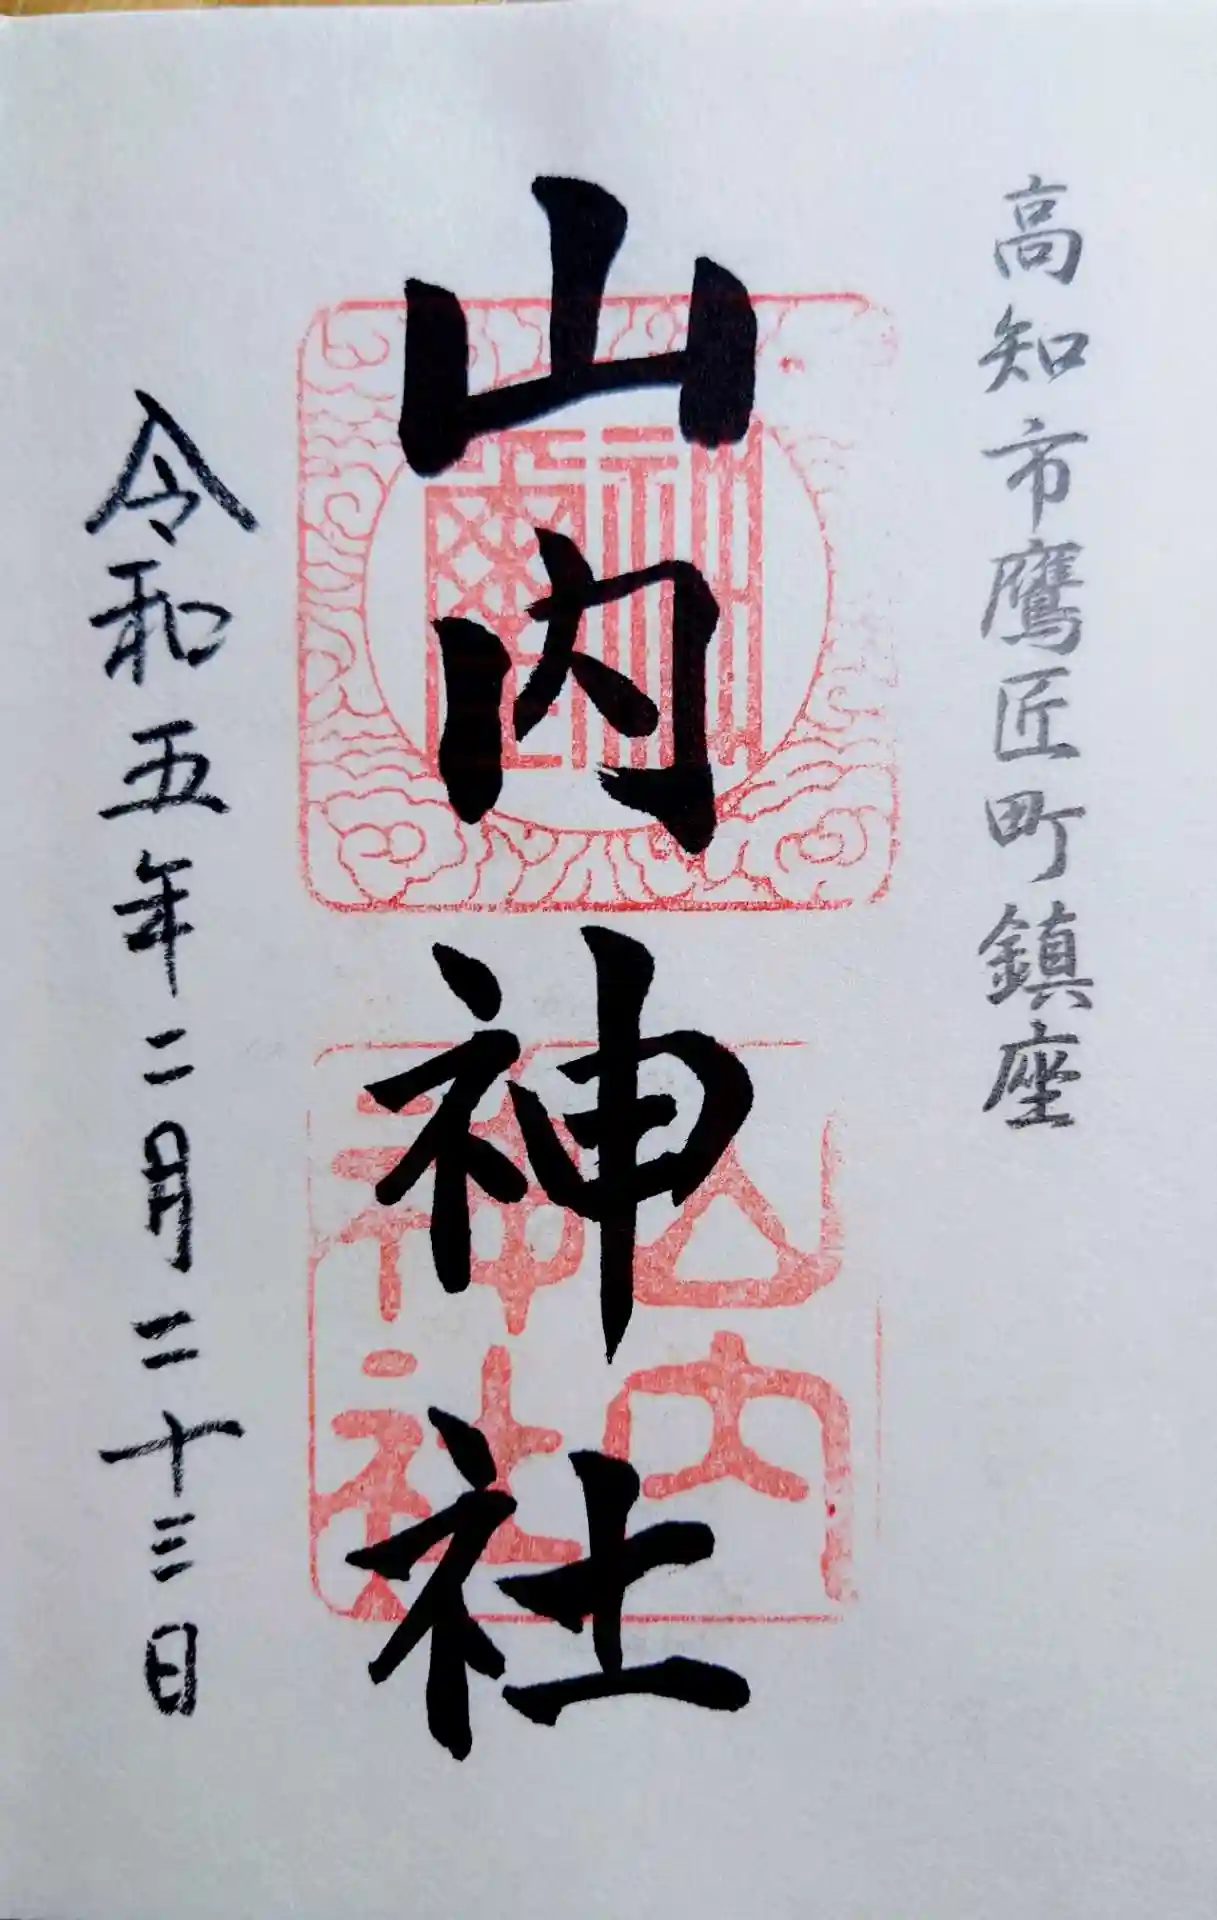 高知市鷹匠町鎮座
山内神社
山内
神社
令和五年二月二十三日